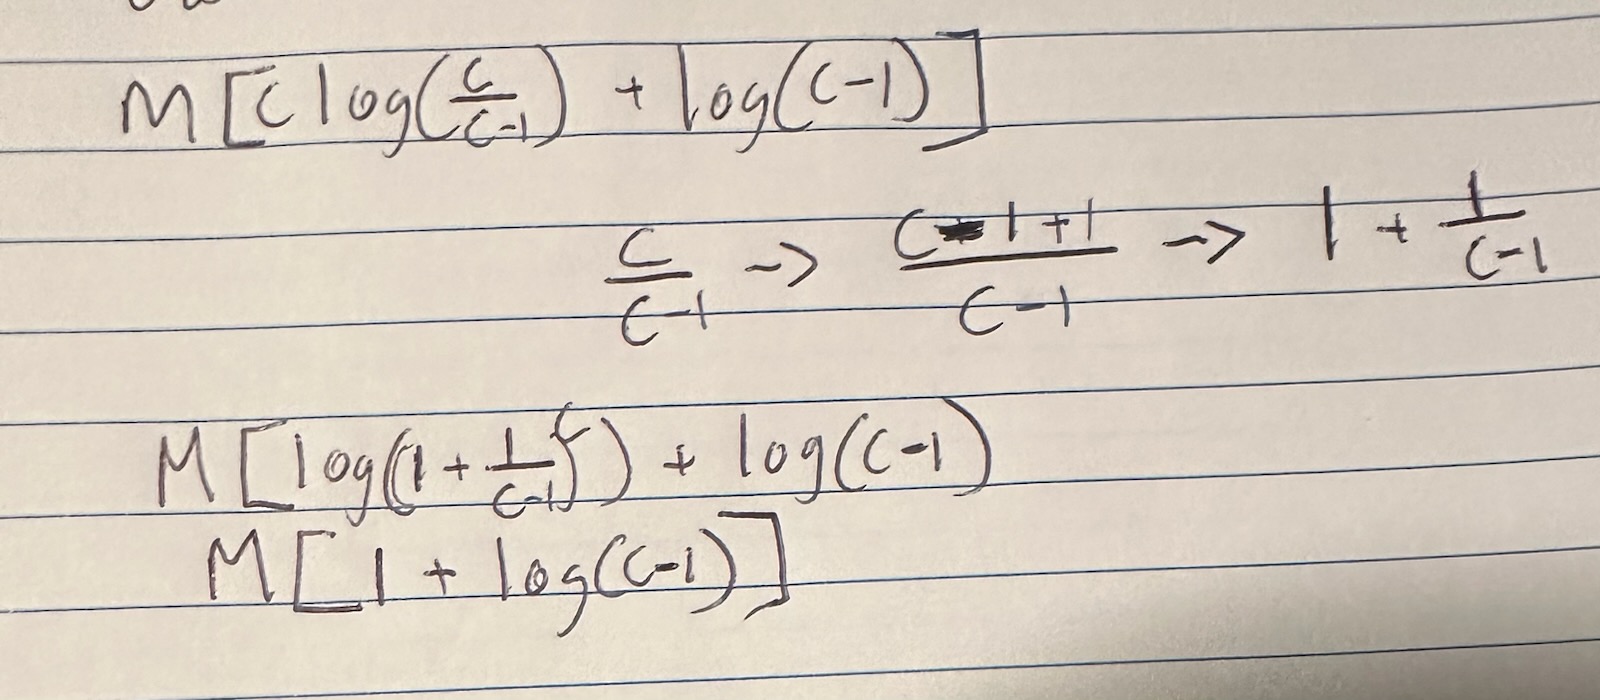 M[C log(C/(C-1)) + log(C-1)]
C/(C-1) -> (C-1+1)/(C-1) -> 1 + 1/(C-1)
M[log((1 + 1/(C-1))^C) + log(C-1)
M[1 + log(C-1)]